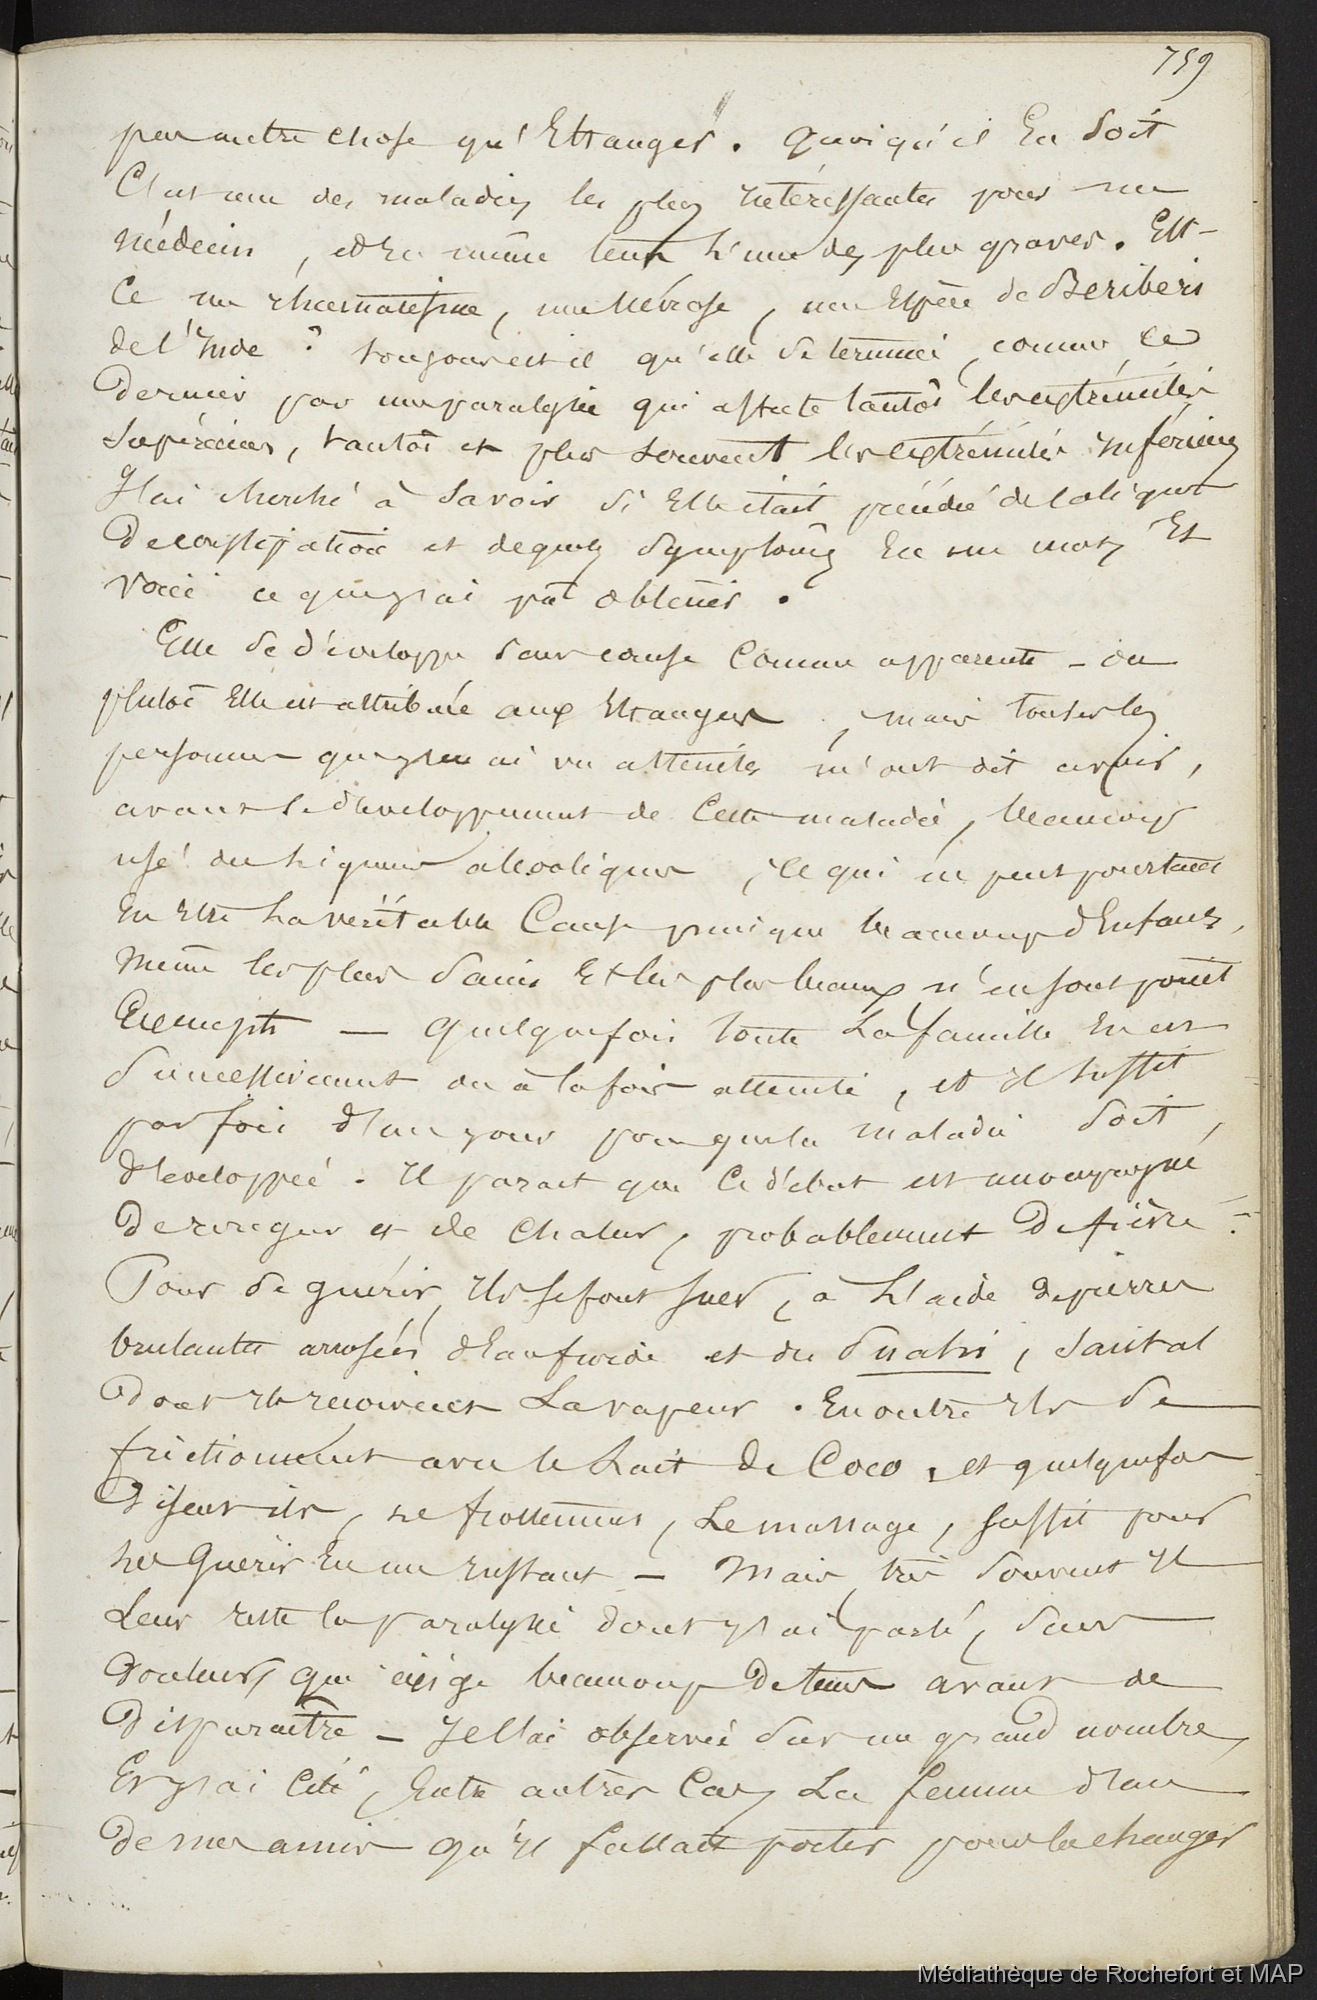 759
peu metre chose qu'Etranger. quoiqu'il En soit
C'est une des maladies les plus intéressantes pour un
médecin, et En même tems L'une des plus graves. Est-
Ce un rhumatisme, une Névrose, une Espèce de Beriberi
de l'Inde ? toujours est il qu'elle se termine, comme ce
Dernier par une paralysie qui affecte tantôt les extrémités
Supérieures, tantôt et plus souvent les extrémités inférieures
J'ai cherché à Savoir si Elle était précédée de coliques
De constipation et de quels Symptômes En un mot, Et
voici ce que j'ai pû obtenir.
Elle se développe sans cause Connue apparente - ou
plutôt Elle est attribuée aux Etrangers, mais toutes les
personnes que j'en ai vu atteintes m'ont dit avoir,
avant le développement de Cette maladie, beaucoup
usé de Liqueurs alcooliques, ce qui ne peut pourtant
En Etre La véritable Cause puisque beaucoup d'Enfants,
même les plus sains Et les plus beaux n'en sont point
Exempts — quelquefois toute La famille En est
Successivement ou à la fois atteinte, et il suffit
par fois d'un jour pour que la maladie soit,
développée. Il parait que Ce début est accompagné
De rougeur et de Chaleur, probablement De fièvre ?
Pour se guérir, Ils se font suer, à L'aide de pierres
brulantes arrosées d'Eau froide et du Puahi, santal
Dont ils reçoivent La vapeur. En outre Ils Se
frictionnent avec le Lait de Coco, et quelquefois
Disent ils, ce frottement, Le massage, suffit pour
les Guérir En un instant — Mais, très souvent Il
Leur reste la paralysie dont j'ai parlé, sans
Douleurs, qui exige beaucoup De tems avant de
Disparaître — Je l'ai observée sur un grand nombre
Et j'ai Cité, Entre autres Cas, La femme d'un
De mes amis qu'Il fallait porter pour la changer
Médiathèque de Rochefort et MAP